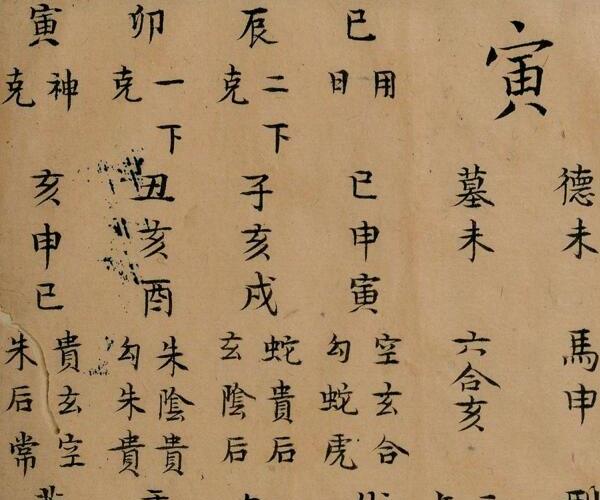 寅
德未 馬申
墓未 六合亥
巳
用
日
巳申寅
空玄合
勾蛇虎
辰
二下
克
子亥戌
蛇貴后
玄陰后
卯
一下
克
丑亥酉
朱陰貴
勾朱貴
寅
神
克
亥申巳
貴玄空
朱后常